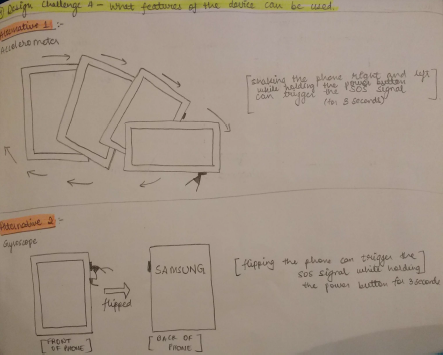 Design Challenge 4 - What features of the device can be used.
Alternative 1 :-
Accelerometer
[shaking the phone right and left
while holding the power button
can trigger the SOS signal
(for 3 seconds)]
Alternative 2 :-
Gyroscope
SAMSUNG
flipped
[flipping the phone can trigger the
SOS signal while holding]
the power button for 3 seconds
[FRONT
OF PHONE]
[BACK OF
PHONE]